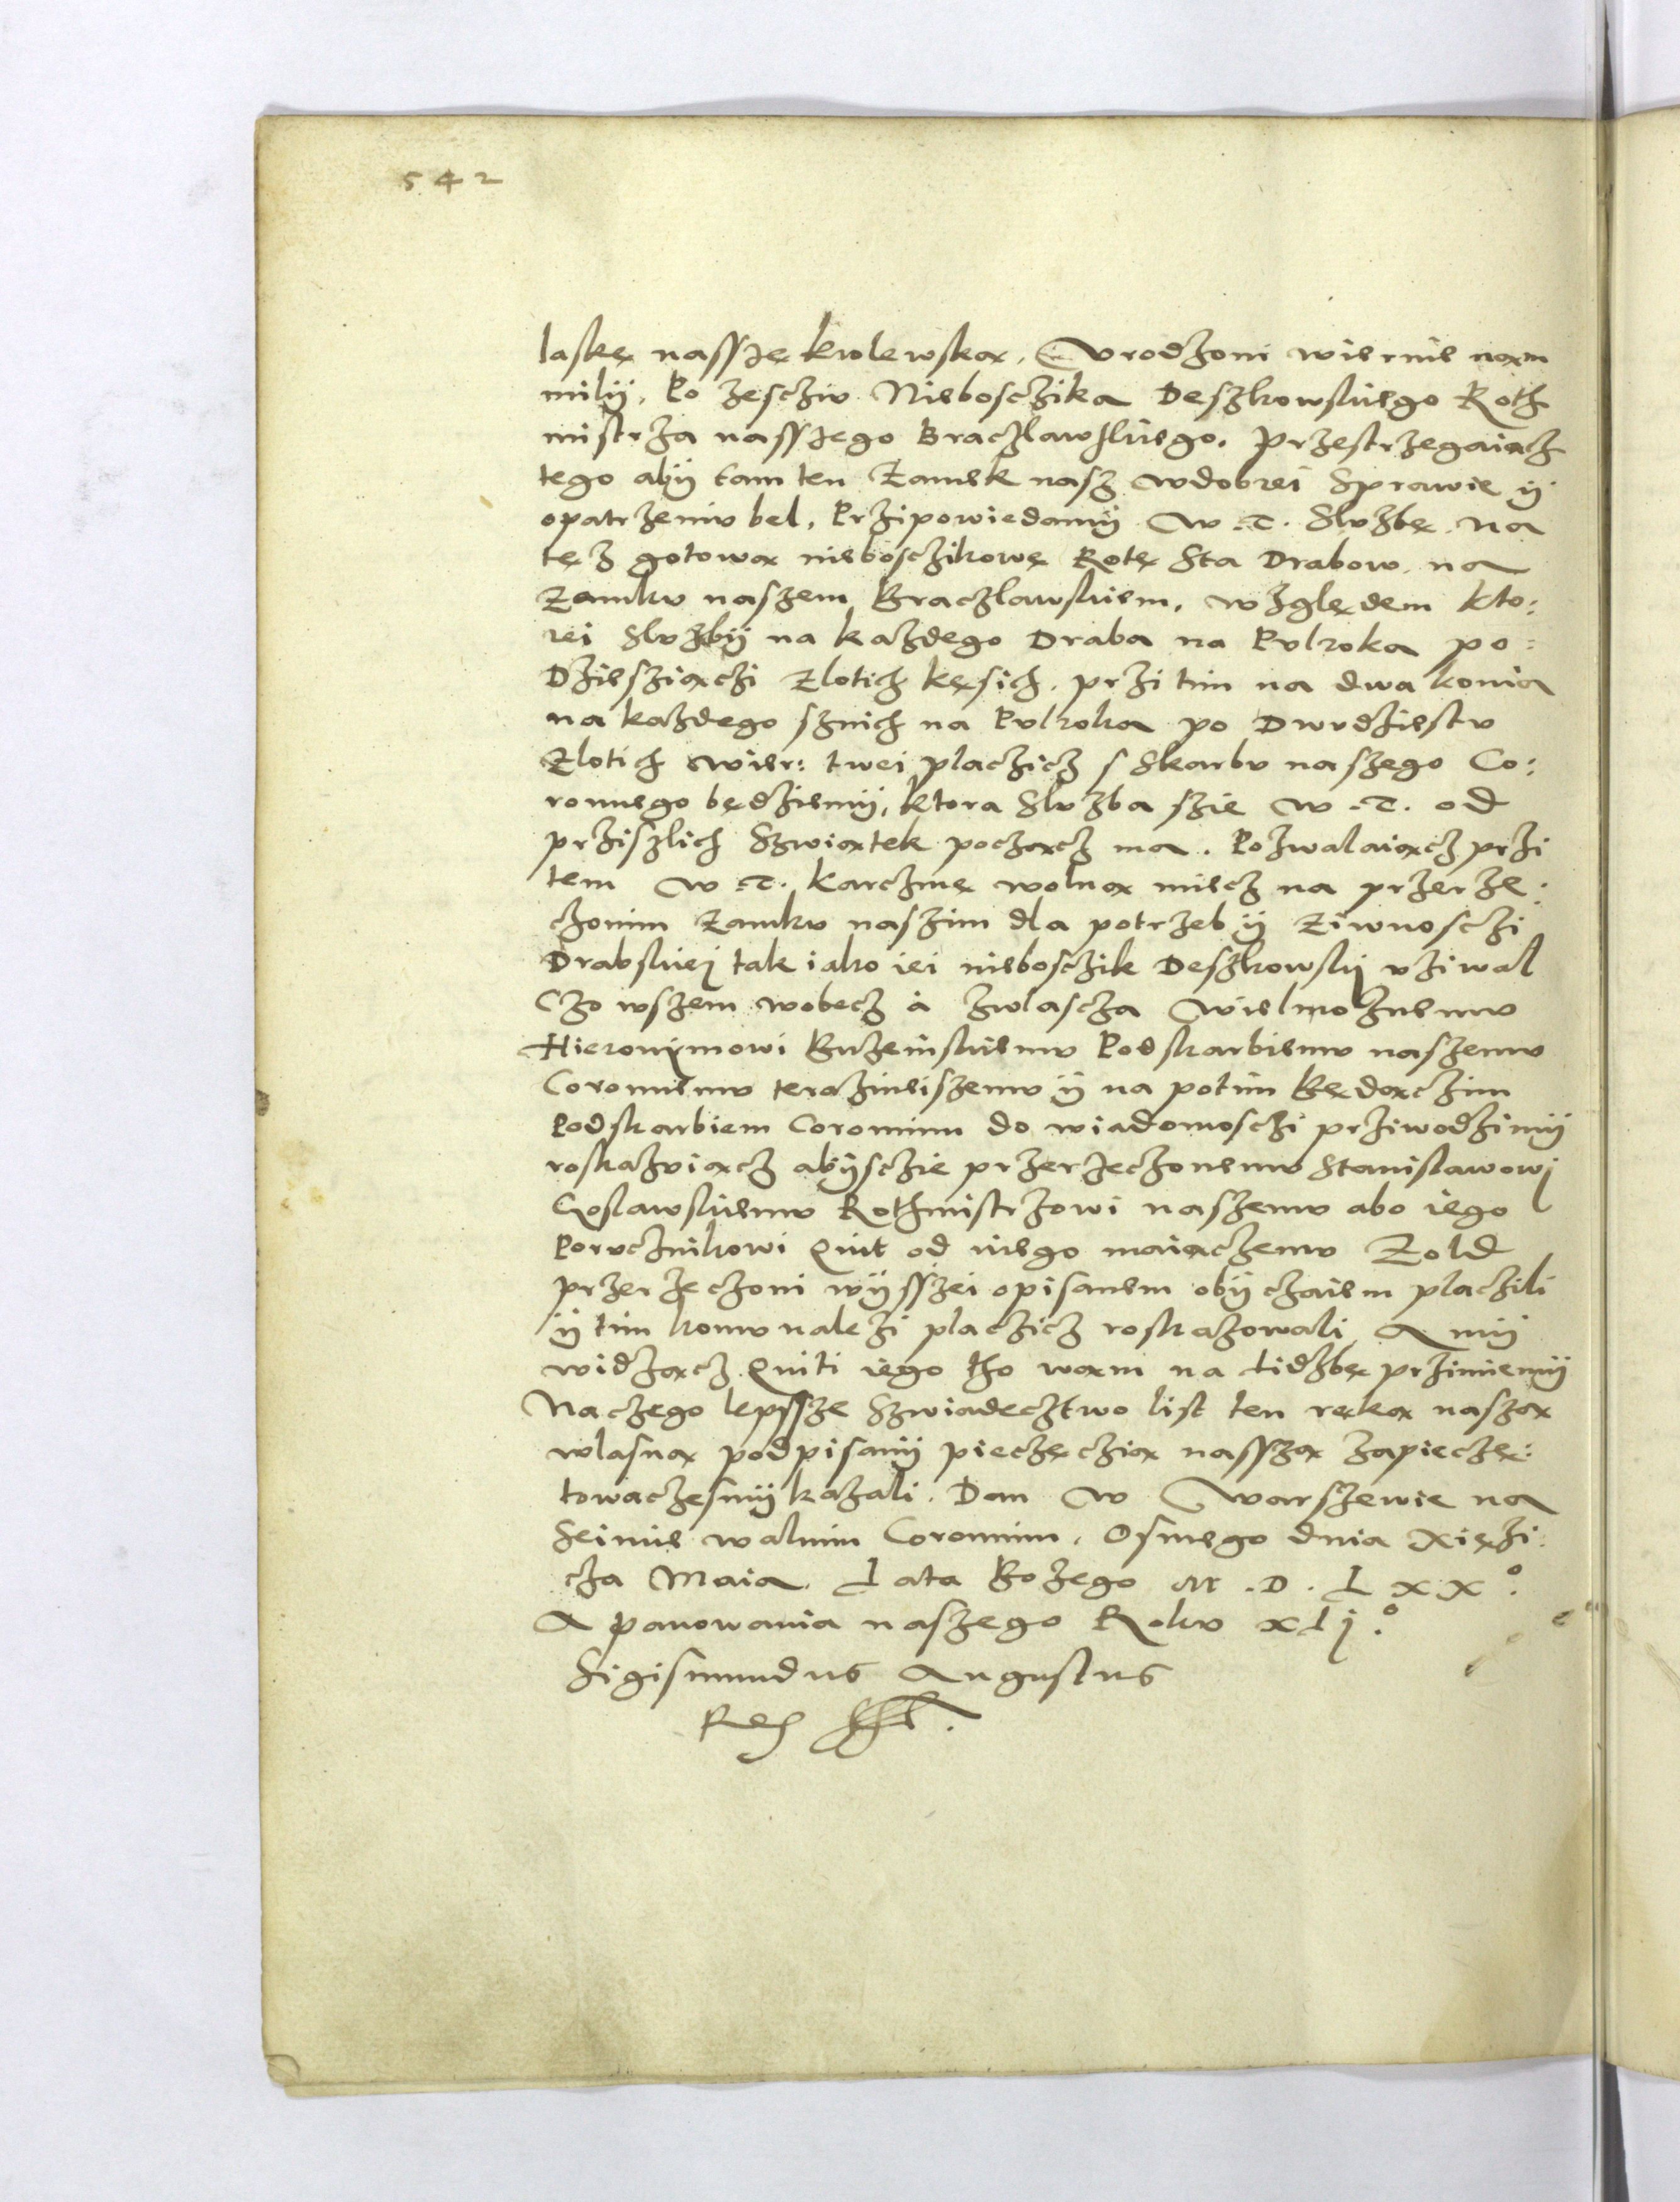 542
laskę nasszę krolewską. Vrodzoni wiernie nąm
milÿ. Po zesczw Nieboszczika Deszkowskiego Roth
mistrza nasszego Braczlawskiego. Przestrzegaiącz
tego abÿ tam ten Zamek nasz wdobrei Sprawie ÿ
opatrzeniv bel. Przipowiedamÿ W. T. Slvzbę na
tęż gotową nieboszczikowę Rotę Sta Drabow na
Zamkv naszem Braczlawskiem. względem kto:
rei Slvzbÿ na kazdego Draba na Pvlroka po:
Dziesziączi Zlotich kęsich. przi tim na dwa konia
na kazdego sznich na Pvlroka po Dwvdziestv
Zlotich Wier: twei placzicz s Skarbv naszego Co:
ronnego będziemÿ, ktora Slvzba szie W. T. od
prziszlich Szwiątek począcz ma. Pozwalaiącz przi
tem W. T. karczmę wolną miecz na przerze:
czonim Zamkv naszim dla potrzeb ÿ Ziwnosczi
Drabskiei tak iako iei nieboszczik Deszkowski vziwal
Czo wszem wobecz á zwlascza Wielmoznemv
Hieronÿmowi Bvzenskiemv Podskarbiemv naszemv
Coronnemv terazineiszemv ÿ na potim Będączim
Podskarbiem Coronnim do wiadomosczi prziwodzimÿ
roskazviącz abÿsczie przerzeczonemv Stanislawowi
Goslawskiemv Rothmistrzowi naszemv abo iego
Porvcznikowi Quit od niego maiączemv Zold
przerzeczoni wÿsszei opisanem obÿczaiem placzili
ÿ tim komv nalezi placzicz roskazowali A mÿ
widzącz Quiti iego tho wąm na liczbę przimiemÿ
Na czego lepssze Szwiadecztwo list ten ręką naszą
wlasną podpisanÿ pieczęczią nasszą zapieczę:
towaczesmÿ kazali. Dan W Warszewie na
Seimie walnim Coronnim. Osmego dnia Xiezi:
cza Maia. Lata Bozego M. D. L x x°.
A panowania naszego Rokv xlj°.
Sigismundus Augustus
Rex